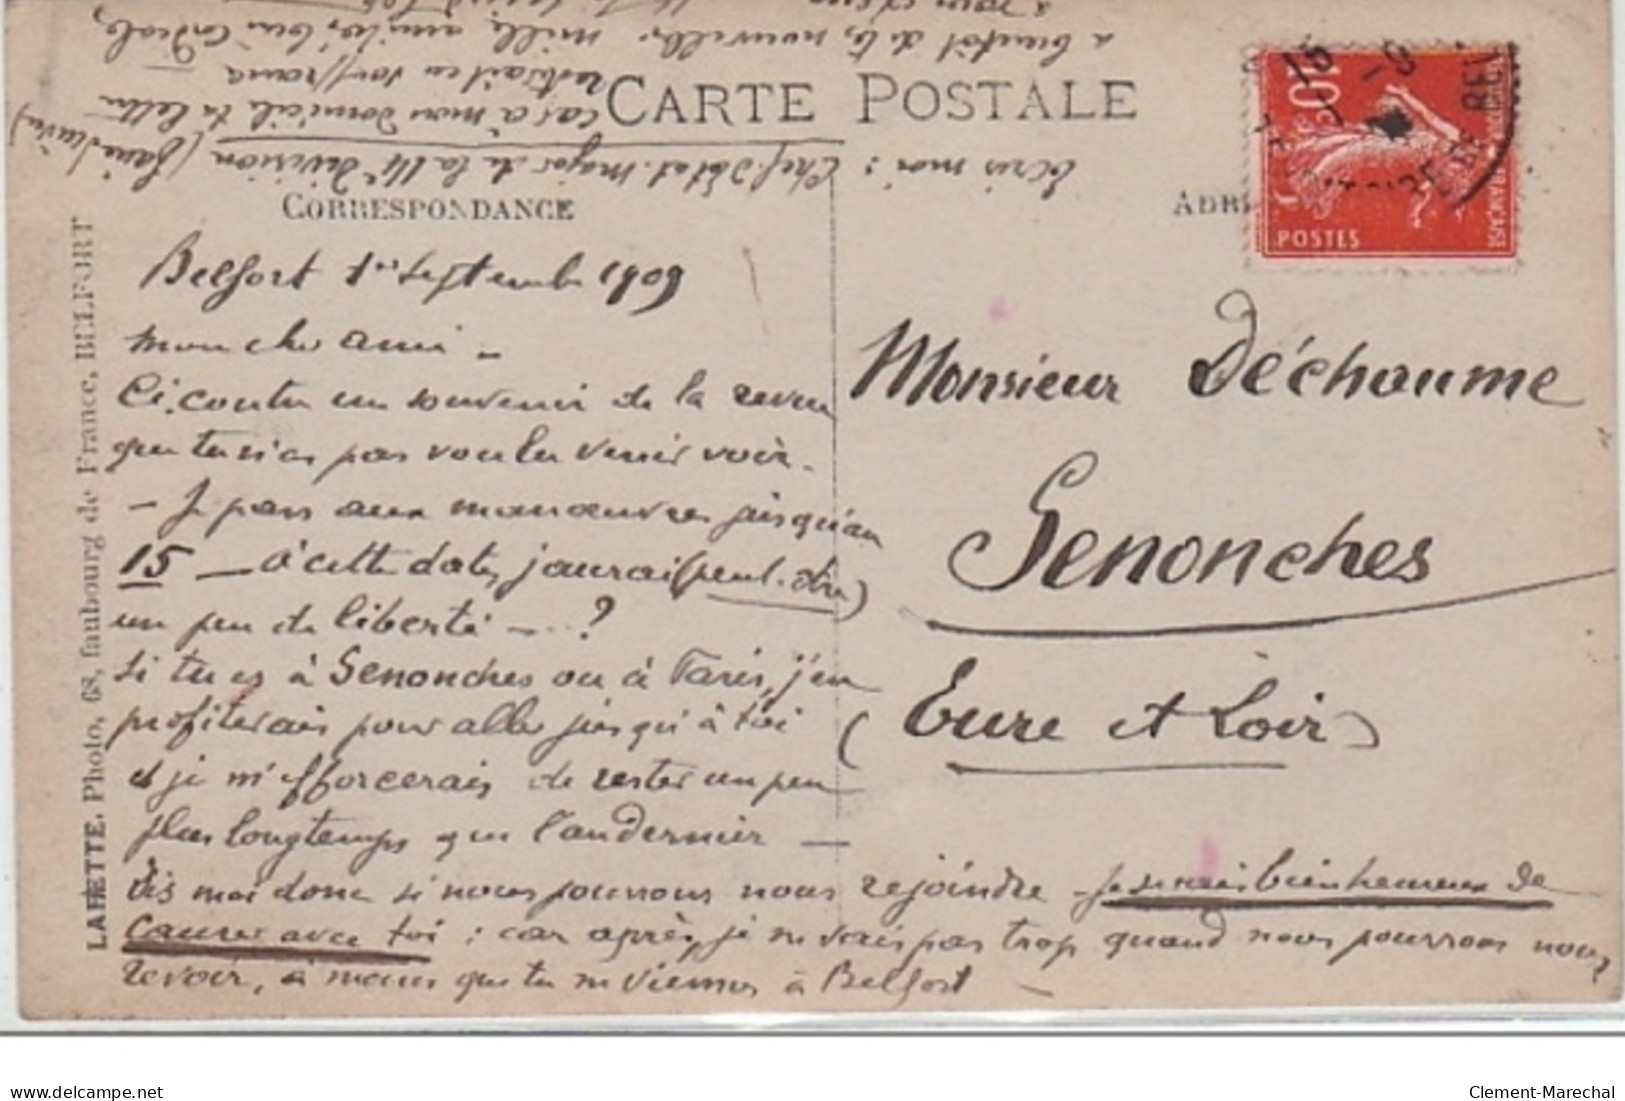 CARTE POSTALE
CORRESPONDANCE
ADR
POSTES
10c
LAFFETTE, Photo, 68, faubourg de France, BELFORT
Belfort 1er Septembre 1909
mon cher ami -
Ci-contre un souvenir de la revue
que tu n'as pas voulu venir voir.
- Je pars aux manœuvres jusqu'au
15 - à cette date, j'aurai (peut-être)
un peu de liberté - .. ?
si tu es à Senonches ou à Paris, j'en
profiterais pour aller jusqu'à toi
et je m'efforcerais de rester un peu
plus longtemps que l'an dernier -
Dis moi donc si nous pouvons nous rejoindre - Je serais bien heureux de
causer avec toi : car après, je ne vois pas trop quand nous pourrons nous
revoir, à moins que tu ne viennes à Belfort -
Monsieur Déchaume
Senonches
(Eure et Loir)
Ecris moi : Chef d'Etat-major de la 14e division (
car à mon domicile ta lettre
resterait en souffrance
à bientôt de tes nouvelles. mille amitiés bien cordiales,
delcampe.net
Clement-Marechal